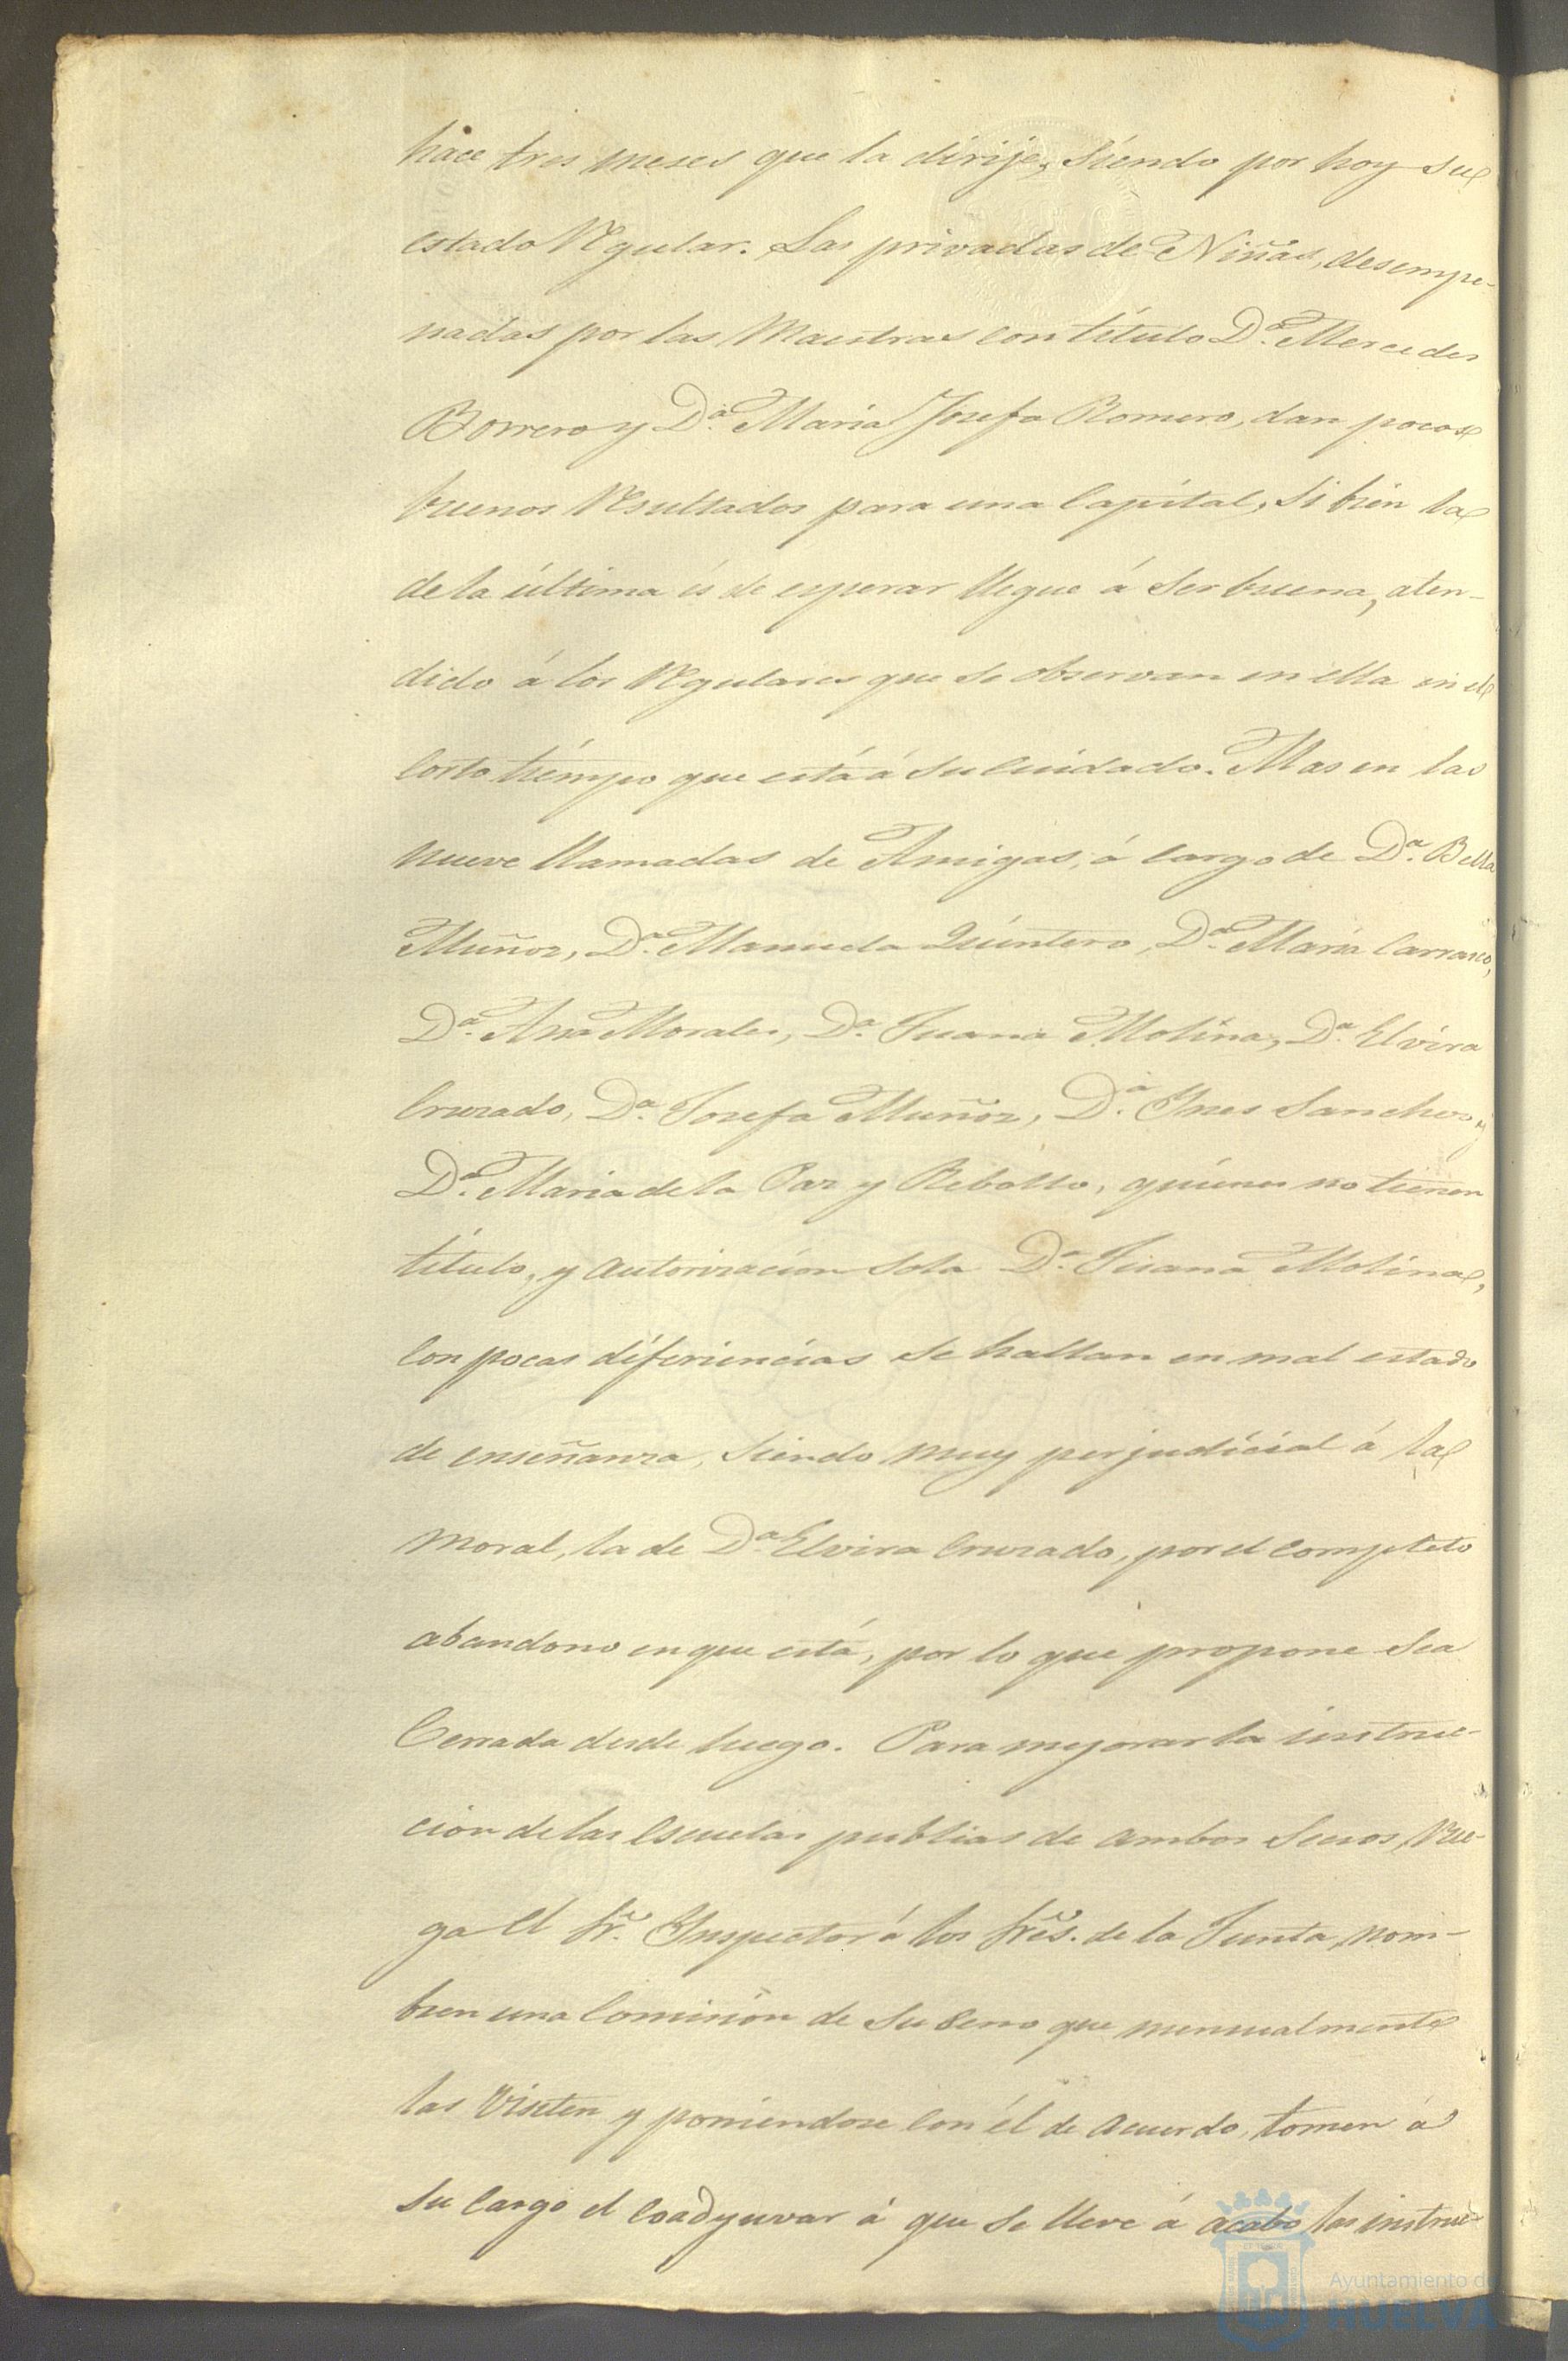 hace tres meses que la dirije, siendo por hoy su
estado regular. Las privadas de Niñas, desempe-
nadas por las Maestras con título D.ª Mercedes
Borrero y D.ª Maria Josefa Romero, dan pocos
buenos resultados para una Capital, si bien la
de la última és de esperar llegue á ser buena, aten-
dido á los regulares que se observan en ella en el
corto tiémpo que está á su cuidado. Mas en las
nueve llamadas de Amigas, á cargo de D.ª Bella
Muñoz, D.ª Manuela Quintero, D.ª Maria Carrasco,
D.ª Ana Morales, D.ª Juana Molina, D.ª Elvira
Cruzado, D.ª Josefa Muñoz, D.ª Ines Sanchez y
D.ª Maria de la Paz y Rebollo, quiénes no tienen
título, y autorizacion sola D.ª Juana Molina,
con pocas diferiencias se hallan en mal estado
de enseñanza, siendo muy perjudicial á la
moral, la de D.ª Elvira Cruzado, por el completo
abandono en que está, por lo que propone sea
Cerrada desde luego. Para mejorar la instruc-
cion de las escuelas publias de ambos secsos, rue-
ga el Sr. Inspector á los Sres. de la Junta, nom-
bren una Comision de su seno que mensualmente
las visiten y poniendose con él de acuerdo, tomen á
su cargo el coadyuvar á que se lleve á acabo las instruc-
Ayuntamiento de
HUELVA